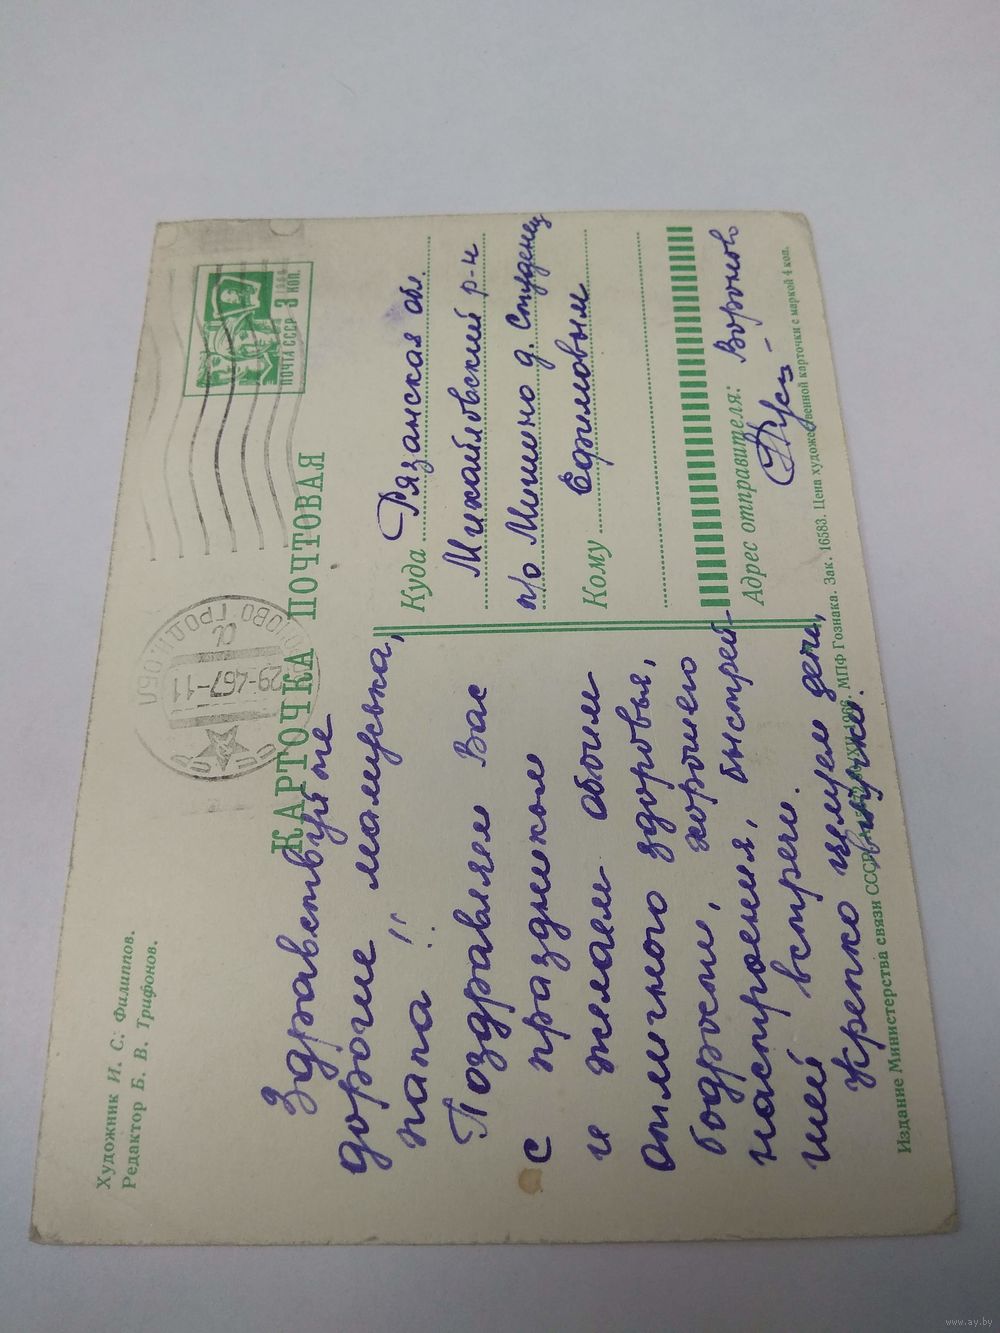 Художник И. С. Филиппов.
Редактор Б. В. Трифонов.
ПОЧТА СССР 3 КОП.
1966
ГРОДН. ОБЛ
29-4 67-11
КАРТОЧКА ПОЧТОВАЯ
Здравствуйте
дорогие мамуська,
папа!!
Поздравляем Вас
с праздником
и желаем обоим
отличного здоровья,
бодрости, хорошего
настроения, быстрей-
шей встречи.
Крепко целуем дети,
внучки.
Куда Рязанская обл.
Михайловский р-н
п/о Мишино д. Студенец
Кому Ефимовым
Адрес отправителя: Вороново
Издание Министерства связи СССР 1966. МПФ Гознака. Зак. 16583. Цена художественной карточки с маркой 4 коп.
www.ay.by